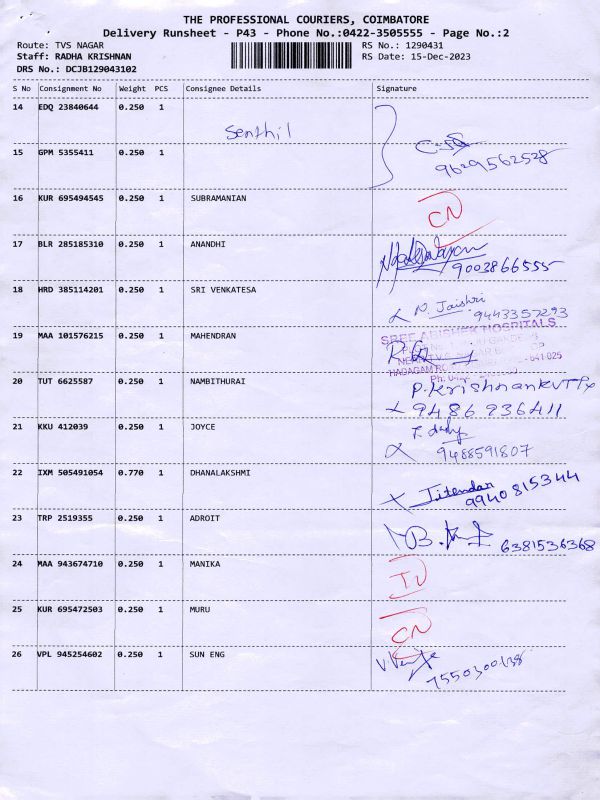 THE PROFESSIONAL COURIERS, COIMBATORE
Delivery Runsheet - P43 - Phone No.:0422-3505555 - Page No.:2
Route: TVS NAGAR RS No.: 1290431
Staff: RADHA KRISHNAN RS Date: 15-Dec-2023
DRS No.: DCJB129043102
S No Consignment No Weight PCS Consignee Details Signature
14 EDQ 23840644 0.250 1
Senthil
15 GPM 5355411 0.250 1
9629562528
16 KUR 695494545 0.250 1 SUBRAMANIAN
CN
17 BLR 285185310 0.250 1 ANANDHI
9003866555
18 HRD 385114201 0.250 1 SRI VENKATESA
P. Jaishri
9443357293
19 MAA 101576215 0.250 1 MAHENDRAN
SREE ABISHEK HOSPITALS
20 TUT 6625587 0.250 1 NAMBITHURAI
P. Krishnankutty
9486936411
21 KKU 412039 0.250 1 JOYCE
9488591807
22 IXM 505491054 0.770 1 DHANALAKSHMI
Jitendar
9940815344
23 TRP 2519355 0.250 1 ADROIT
6381536368
24 MAA 943674710 0.250 1 MANIKA
25 KUR 695472503 0.250 1 MURU
CN
26 VPL 945254602 0.250 1 SUN ENG